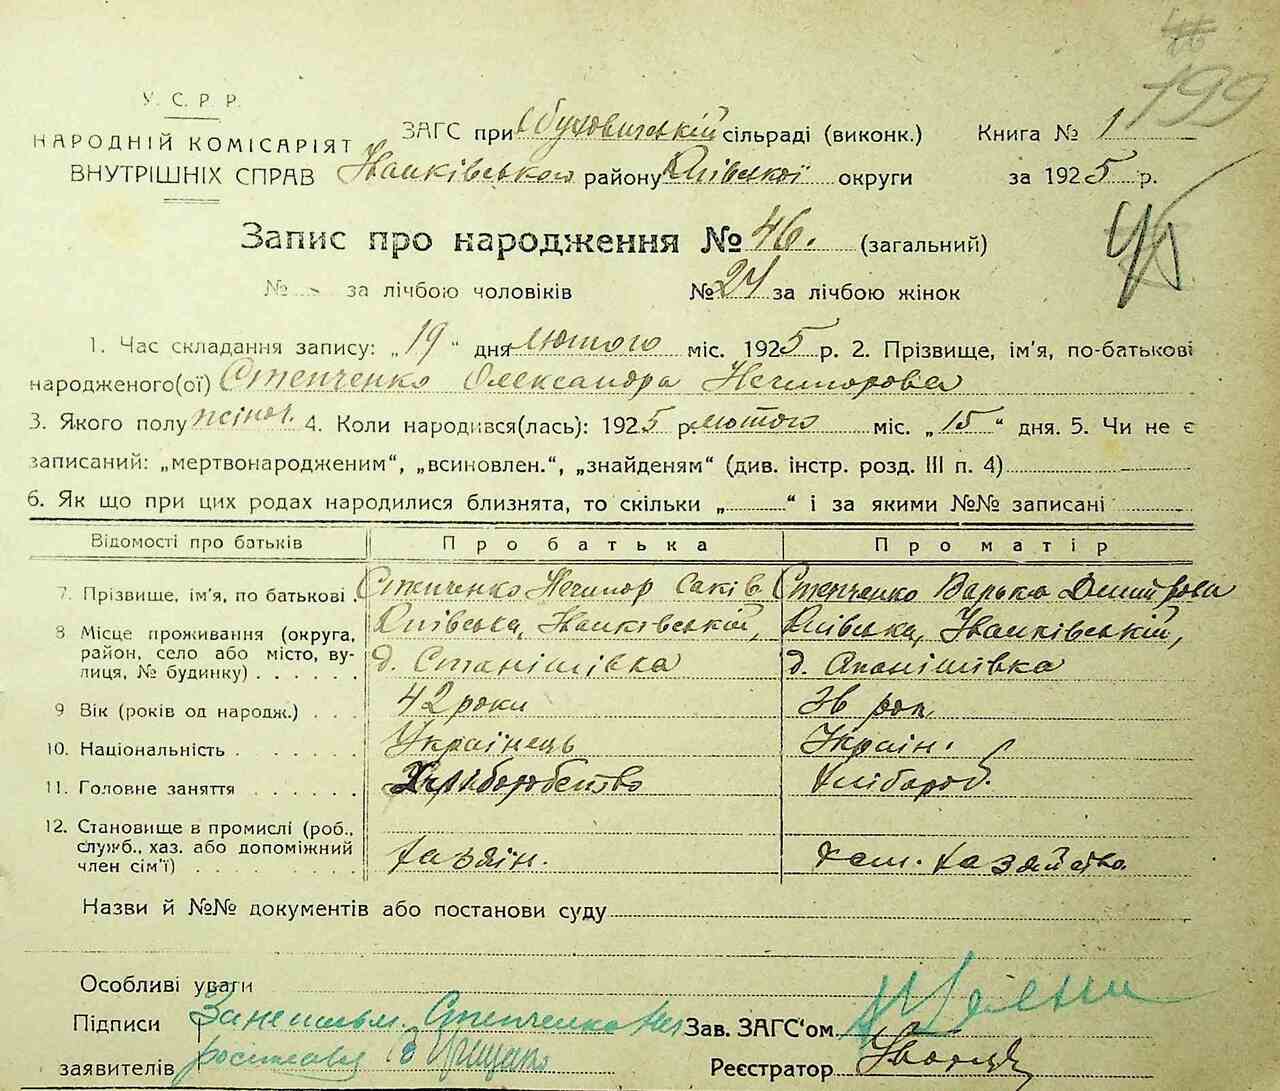 199
У. С. Р. Р.
НАРОДНІЙ КОМІСАРІЯТ
ВНУТРІШНІХ СПРАВ
ЗАГС при Обуховичській сільраді (виконк.) Книга № 1
Іванківського району Київської округи за 1925 р.
Запис про народження № 46. (загальний)
46
№ - за лічбою чоловіків № 24 за лічбою жінок
1. Час складання запису: „19“ дня лютого міс. 1925 р. 2. Прізвище, ім'я, по-батькові
народженого(ої) Степченко Олександра Нечипорова
3. Якого полу жіноч. 4. Коли народився(лась): 1925 р. лютого міс. „15“ дня. 5. Чи не є
записаний: „мертвонародженим“, „всиновлен.“, „знайденям“ (див. інстр. розд. III п. 4)
6. Як що при цих родах народилися близнята, то скільки „ “ і за якими №№ записані
Відомості про батьків Про батька Про матір
7. Прізвище, ім'я, по батькові Степченко Нечипор Саків Степченко Варька Дмитрова
8 Місце проживання (округа, Київська, Іванківській, Київська, Іванківській,
район, село або місто, ву- д. Станішівка д. Станішівка
лиця, № будинку)
9 Вік (років од народж.) 42 роки 36 рок.
10. Національність Українець Україн.
11. Головне заняття Хліборобство хлібороб.
12. Становище в промислі (роб.,
служб., хаз. або допоміжний хазяїн. хазяйства
член сім'ї)
Назви й №№ документів або постанови суду
Особливі уваги
Підписи Степченко Зав. ЗАГС'ом
заявителів Реєстратор